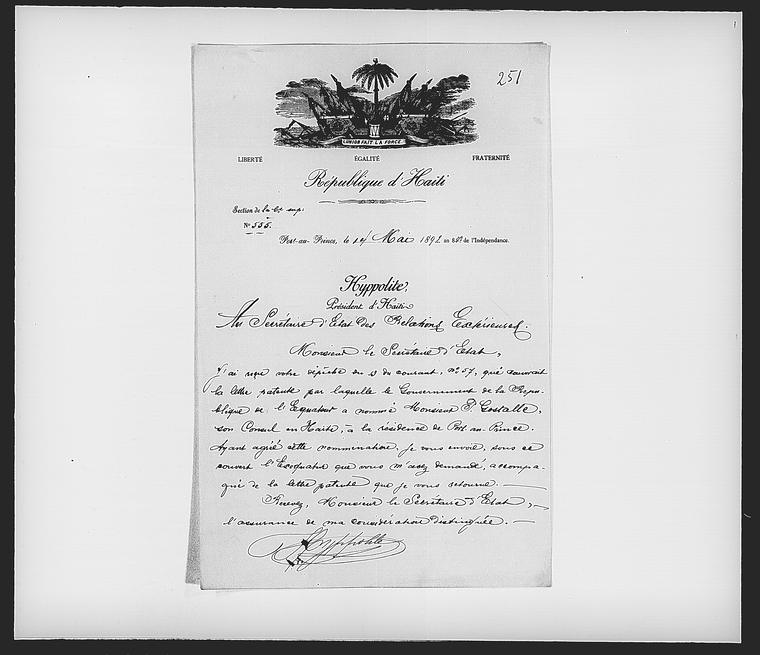 251
L'UNION FAIT LA FORCE
LIBERTÉ ÉGALITÉ FRATERNITÉ
République d'Haiti
Section de la
Nº 555.
Port-au-Prince, le 14 Mai 1892 an 89e de l'Indépendance.
Hyppolite,
Président d'Haiti
Au Secrétaire d'Etat des Relations Extérieures.
Monsieur le Secrétaire d'Etat,
J'ai reçu votre dépêche du courant, nº 57, qui couvrait
la lettre patente par laquelle le Gouvernement de la Répu-
blique de l'Equateur a nommé Monsieur
son Consul en Haïti, à la résidence de Port-au-Prince.
Ayant agréé cette nomination, je vous envoie, sous ce
couvert l'Exequatur que vous m'avez demandé, accompa-
gné de la lettre patente que je vous retourne.
Recevez, Monsieur le Secrétaire d'Etat,
l'assurance de ma considération distinguée.
Hyppolite